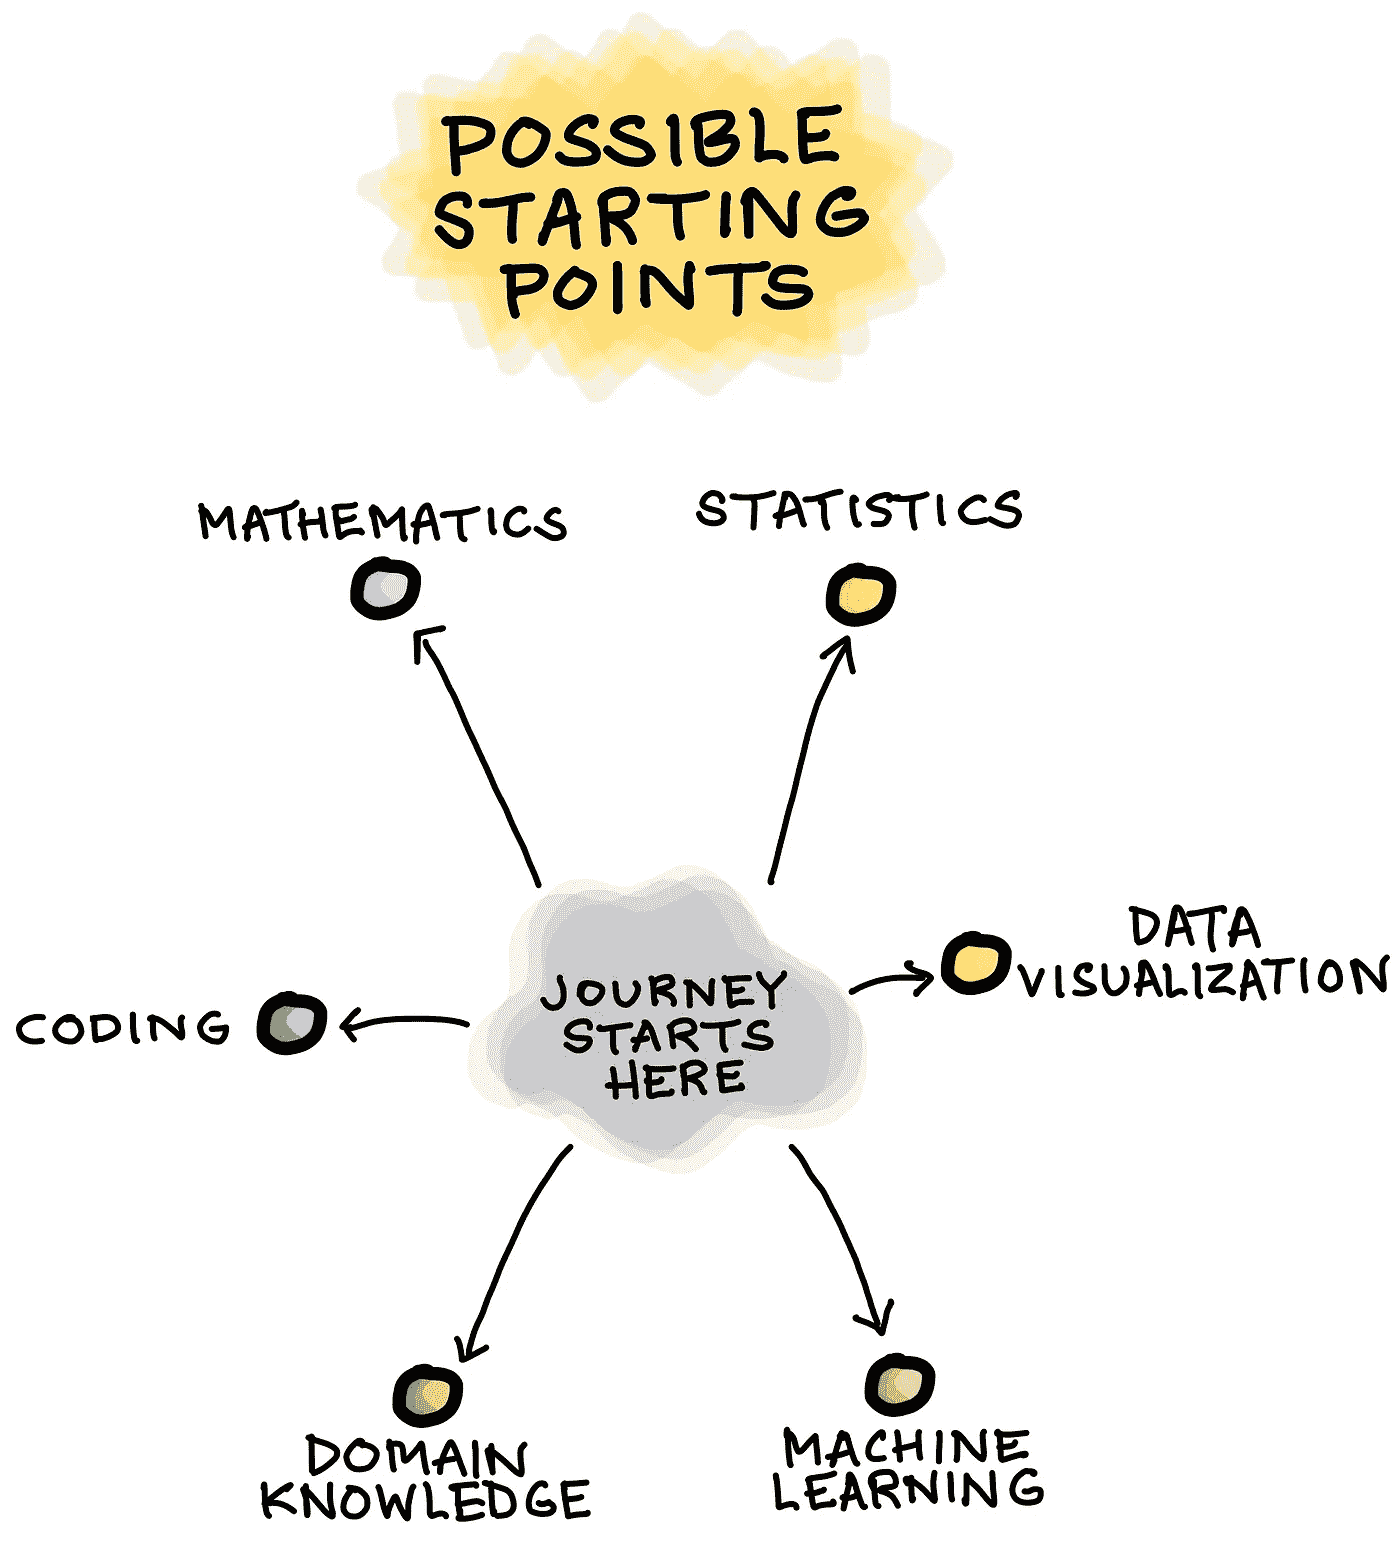 POSSIBLE
STARTING
POINTS
MATHEMATICS
STATISTICS
DATA
VISUALIZATION
CODING
JOURNEY
STARTS
HERE
DOMAIN
KNOWLEDGE
MACHINE
LEARNING